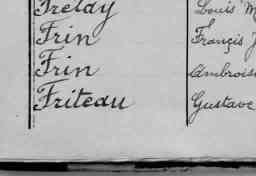 Freldy Louis M
Frin François J
Frin Ambrois
Friteau Gustave